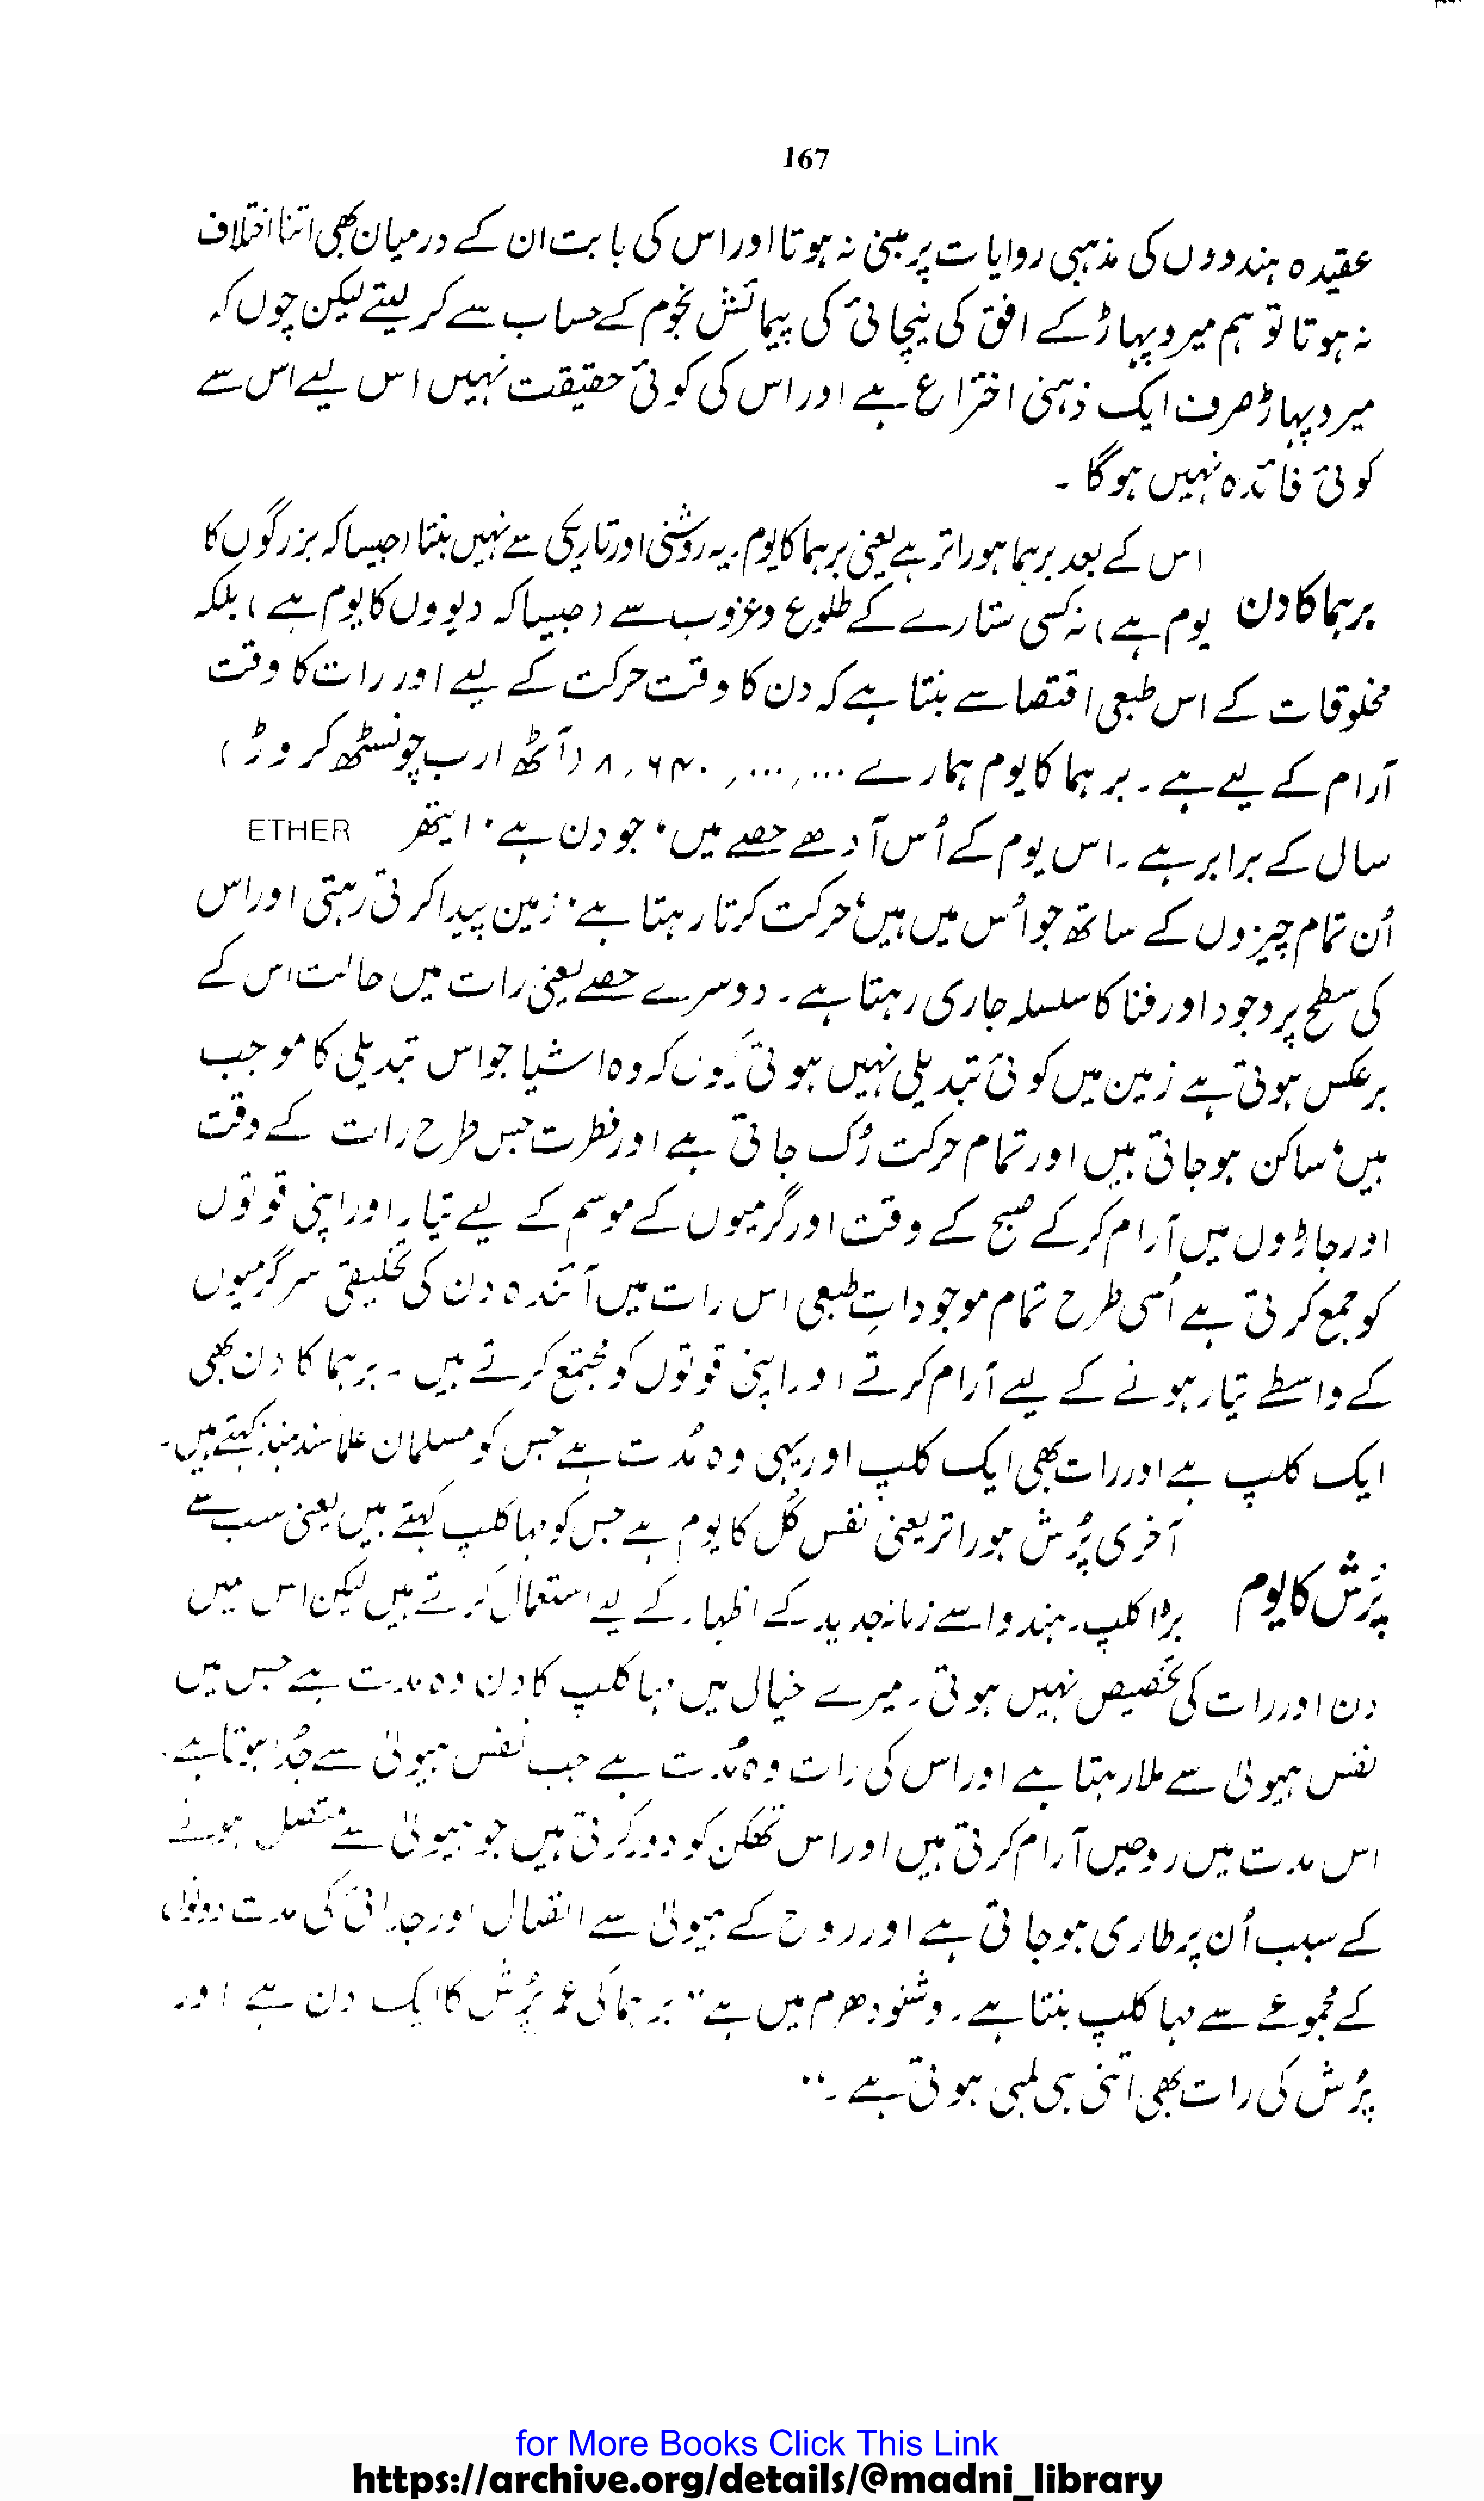 167
عقیدہ ہندووں کی مذہبی روایات پر مبنی نہ ہوتا اور اس کی بابت ان کے درمیان بھی اتنا اختلاف
نہ ہوتا تو ہم میرو پہاڑ کے افق کی نیچائی کی پیمائش نجوم کے حساب سے کر لیتے لیکن چوں کہ
میرو پہاڑ صرف ایک ذہنی اختراع ہے اور اس کی کوئی حقیقت نہیں اس لیے اس سے
کوئی فائدہ نہیں ہوگا ۔
برہما کا دن
اس کے بعد برہما ہوراتر ہے یعنی برہما کا یوم۔ یہ روشنی اور تاریکی سے نہیں بنتا (جیسا کہ بزرگوں کا
یوم ہے) نہ کسی ستارے کے طلوع و غروب سے (جیسا کہ دیووں کا یوم ہے) بلکہ
مخلوقات کے اس طبعی اقتضا سے بنتا ہے کہ دن کا وقت حرکت کے لیے اور رات کا وقت
آرام کے لیے ہے۔ برہما کا یوم ہمارے ۸,۶۴۰,۰۰۰,۰۰۰ (آٹھ ارب چونسٹھ کروڑ)
سال کے برابر ہے۔ اس یوم کے اُس آدھے حصے میں، جو دن ہے، ایتھر ETHER
اُن تمام چیزوں کے ساتھ جو اُس میں ہیں، حرکت کرتا رہتا ہے، زمین پیدا کرتی رہتی اور اس
کی سطح پر وجود اور فنا کا سلسلہ جاری رہتا ہے۔ دوسرے حصے یعنی رات میں حالت اس کے
برعکس ہوتی ہے زمین میں کوئی تبدیلی نہیں ہوتی کیوں کہ وہ اشیا جو اس تبدیلی کا موجب
ہیں، ساکن ہو جاتی ہیں اور تمام حرکت رُک جاتی ہے اور فطرت جس طرح رات کے وقت
اور جاڑوں میں آرام کر کے صبح کے وقت اور گرمیوں کے موسم کے لیے تیار اور اپنی قوتوں
کو جمع کرتی ہے اُسی طرح تمام موجوداتِ طبعی اس رات میں آئندہ دن کی تخلیقی سرگرمیوں
کے واسطے تیار ہونے کے لیے آرام کرتے اور اپنی قوتوں کو مجتمع کرتے ہیں۔ برہما کا دن بھی
ایک کلپ ہے اور رات بھی ایک کلپ اور یہی وہ مُدت ہے جس کو مسلمان علما سندہند کہتے ہیں۔
پُرُش کا یوم
آخری پُرُش ہوراتر یعنی نفس کُل کا یوم ہے جس کو مہا کلپ کہتے ہیں یعنی سب سے
بڑا کلپ۔ ہندو اسے زمانہ جدید کے اظہار کے لیے استعمال کرتے ہیں لیکن اس میں
دن اور رات کی تخصیص نہیں ہوتی۔ میرے خیال میں مہا کلپ کا دن وہ مدت ہے جس میں
نفس ہیولیٰ سے ملا رہتا ہے اور اس کی رات وہ مُدت ہے جب نفس ہیولیٰ سے جُدا ہوتا ہے۔
اس مدت میں روحیں آرام کرتی ہیں اور اس تھکن کو دور کرتی ہیں جو ہیولیٰ سے متصل ہونے
کے سبب اُن پر طاری ہو جاتی ہے اور روح کے ہیولیٰ سے اتصال اور جدائی کی مدت دونوں
کے مجموعے سے مہا کلپ بنتا ہے۔ وشنو دھرم میں ہے "برہما کی عمر پُرُش کا ایک دن ہے اور
پُرُش کی رات بھی اتنی ہی لمبی ہوتی ہے۔"
for More Books Click This Link
https://archive.org/details/@madni_library